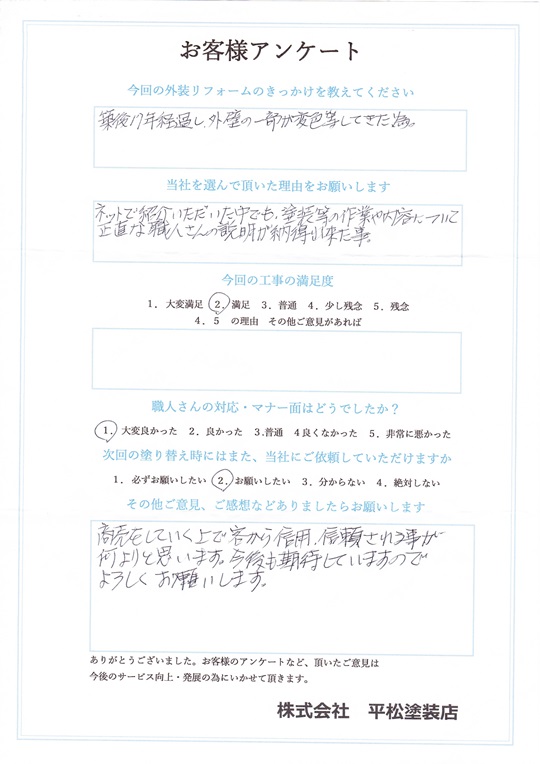 お客様アンケート
今回の外装リフォームのきっかけを教えてください
築後17年経過し、外壁の一部が変色等してきた為。
当社を選んで頂いた理由をお願いします
ネットで紹介いただいた中でも、塗装等の作業や内容について
正直な職人さんの説明が納得出来た事。
今回の工事の満足度
1. 大変満足 2. 満足 3. 普通 4. 少し残念 5. 残念
4. 5 の理由 その他ご意見があれば
職人さんの対応・マナー面はどうでしたか？
1. 大変良かった 2. 良かった 3.普通 4良くなかった 5. 非常に悪かった
次回の塗り替え時にはまた、当社にご依頼していただけますか
1. 必ずお願いしたい 2. お願いしたい 3. 分からない 4. 絶対しない
その他ご意見、ご感想などありましたらお願いします
商売をしていく上で客から信用、信頼される事が
何よりと思います。今後も期待していますので
よろしくお願いします。
ありがとうございました。お客様のアンケートなど、頂いたご意見は
今後のサービス向上・発展の為にいかせて頂きます。
株式会社 平松塗装店